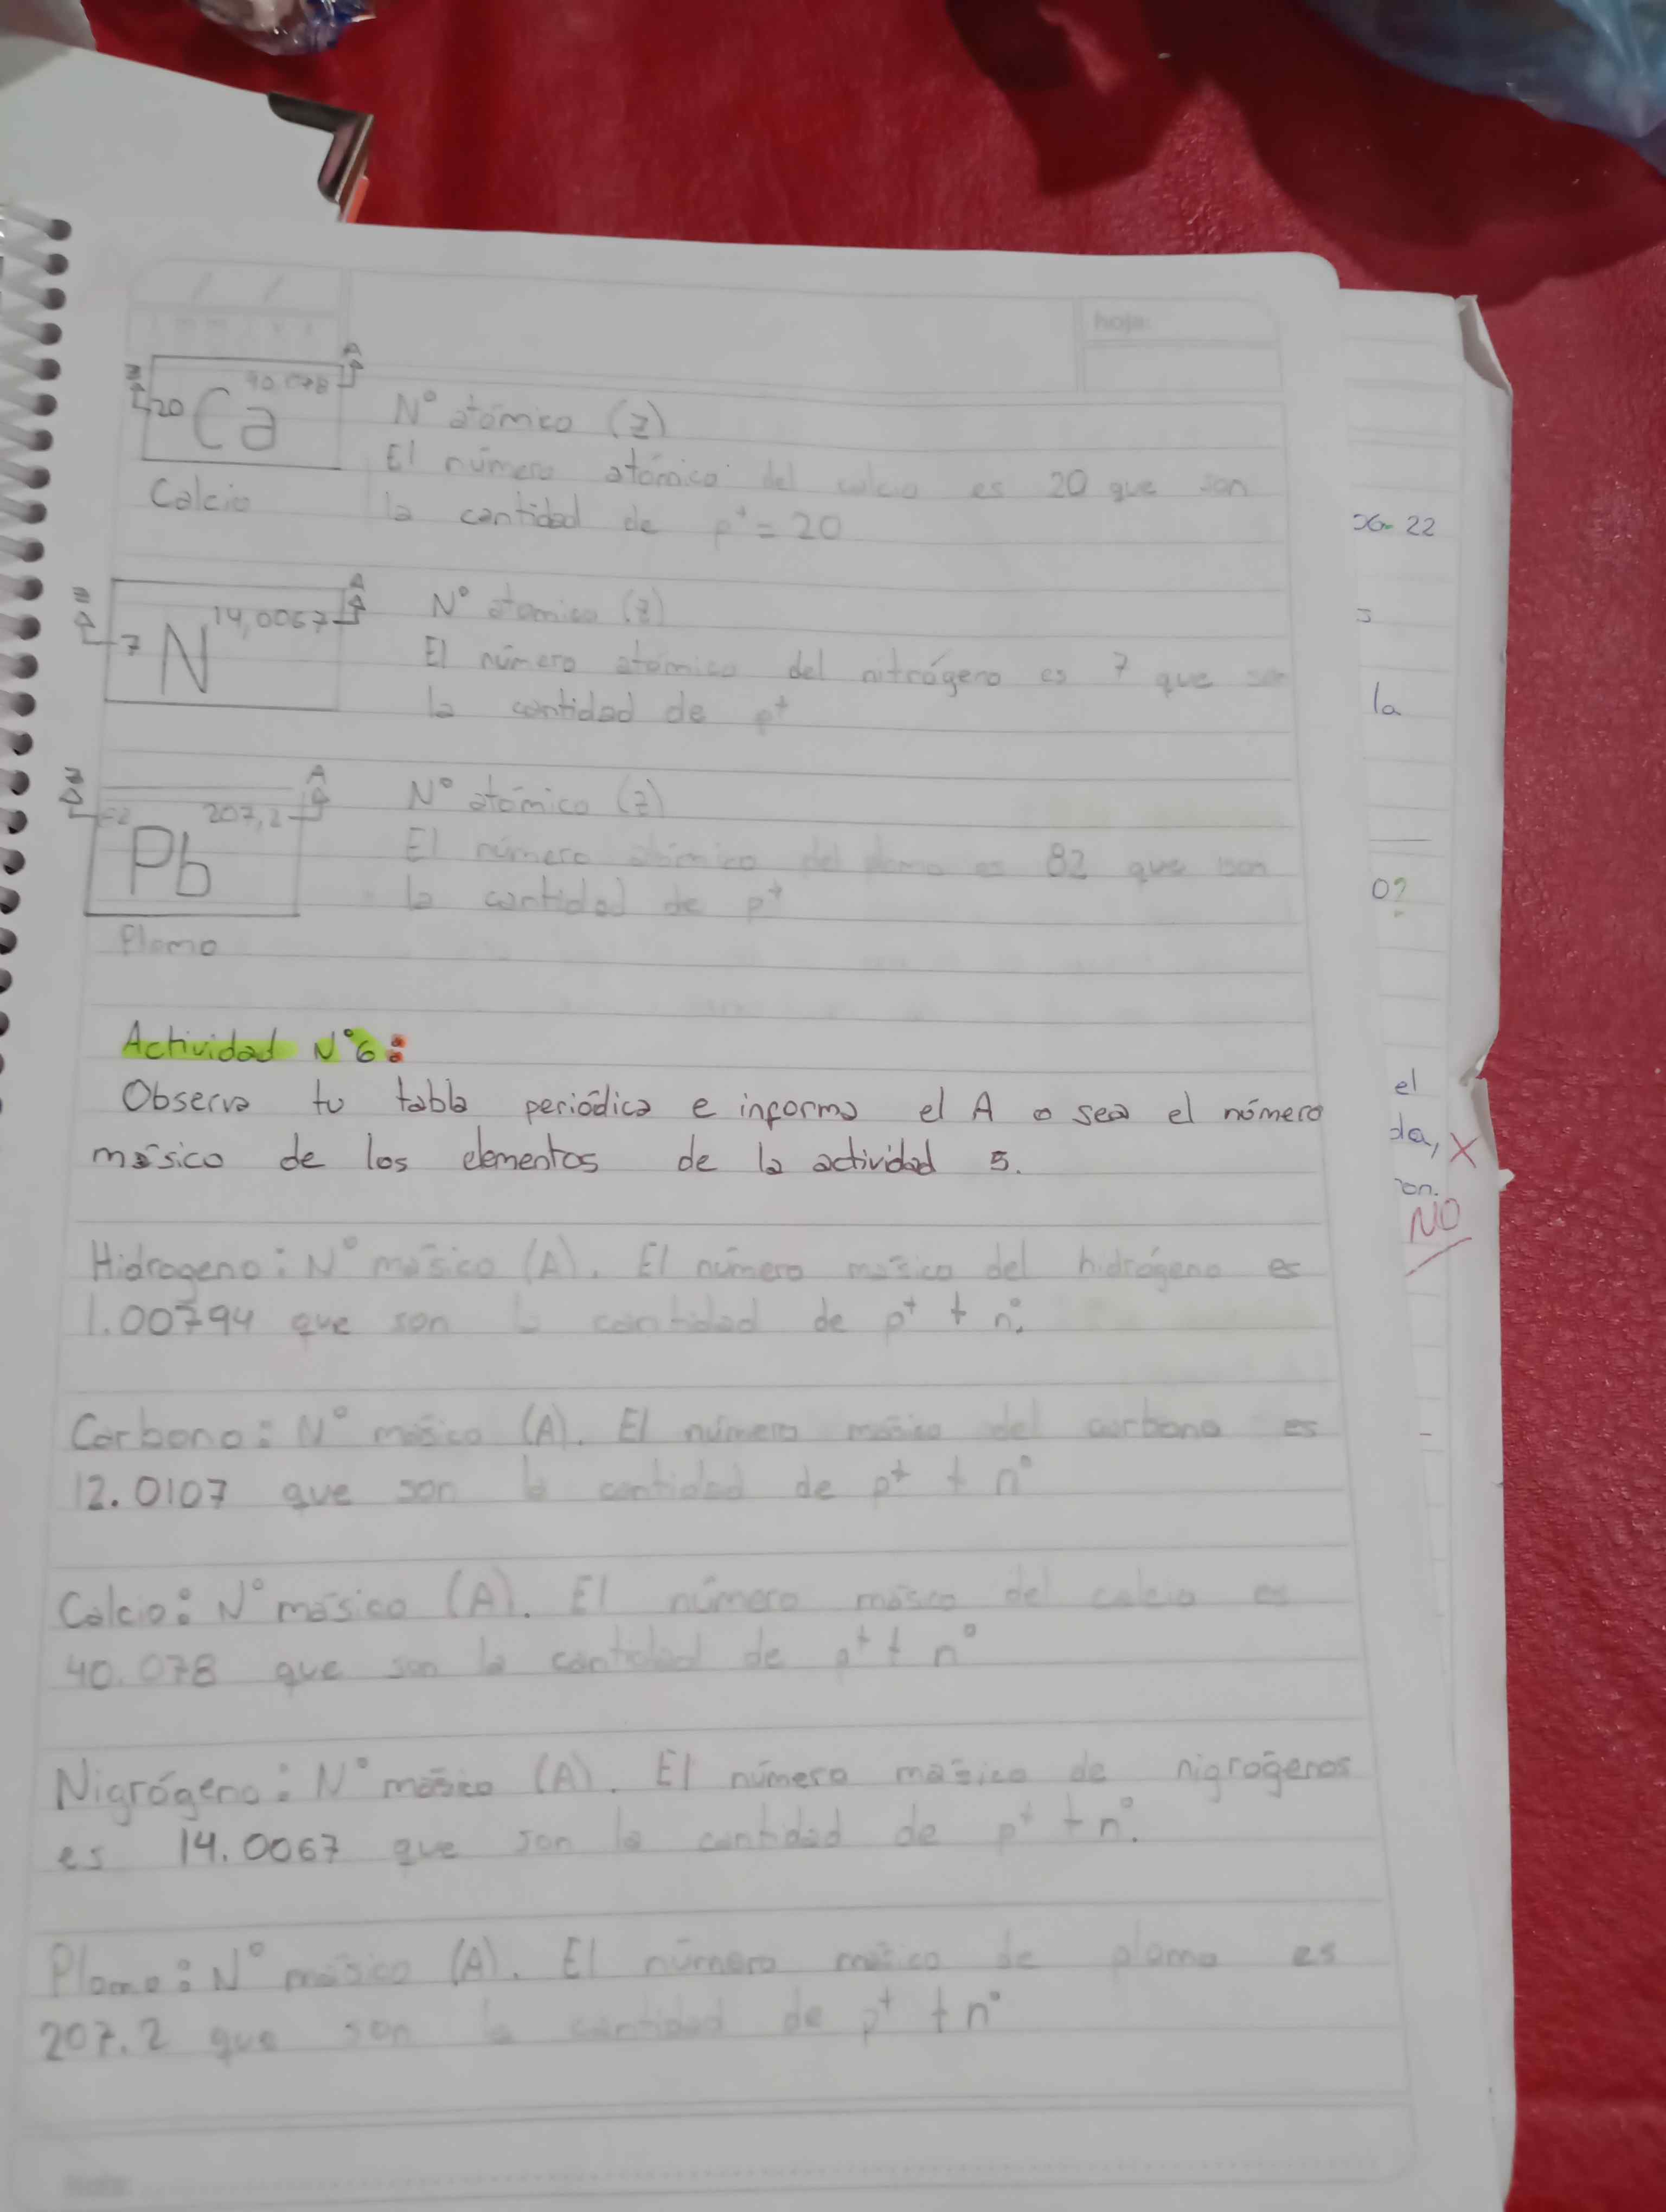 hoja:
Z A
20 Ca 40.078
Calcio
N° atómico (z)
El número atómico del calcio es 20 que son
la cantidad de p+ = 20
Z A
7 N 14,0067
N° atomico (z)
El número atómico del nitrógeno es 7 que son
la cantidad de p+
Z A
82 Pb 207,2
Plomo
N° atómico (z)
El número atómico del plomo es 82 que son
la cantidad de p+
Actividad N°6:
Observa tu tabla periódica e informa el A o sea el número
másico de los elementos de la actividad 5.
Hidrogeno: N° másico (A). El número másico del hidrógeno es
1.00794 que son la cantidad de p+ + n°.
Carbono: N° másico (A). El número másico del carbono es
12.0107 que son la cantidad de p+ + n°
Calcio: N° másico (A). El número másco del calcio es
40.078 que son la cantidad de p+ + n°
Nigrógeno: N° másico (A). El número masico de nigrogenos
es 14.0067 que son la cantidad de p+ + n°.
Plomo: N° másico (A). El número másico de plomo es
207.2 que son la cantidad de p+ + n°
22
la
o?
el
da, X
on.
NO